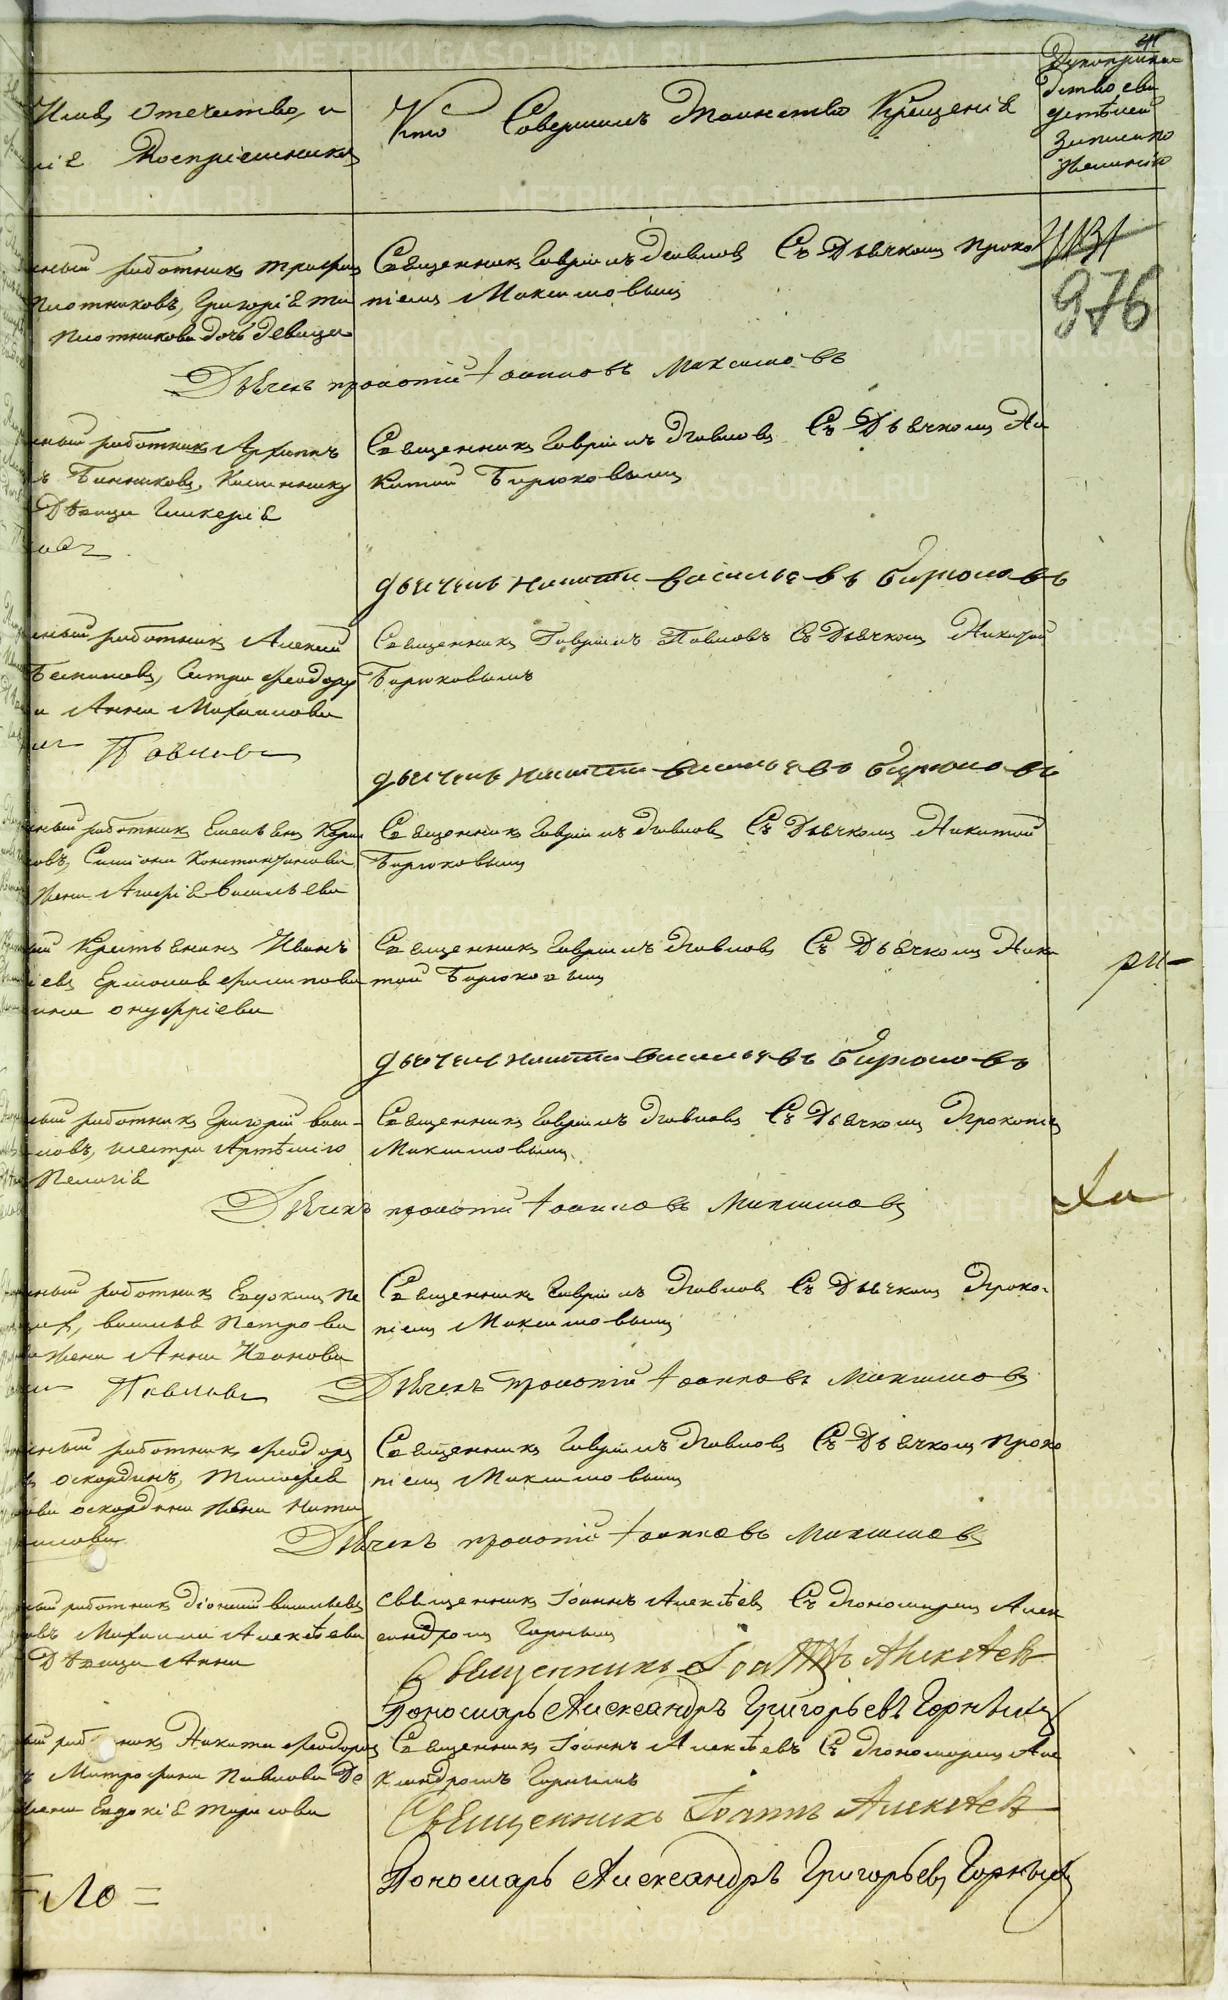 Имя, Отечество, и
Воспріемниковъ
Кто Совершилъ Таинство Крещенія
Рукоприкла
дство сви
дѣтелей
записано
976
ный работникъ Трофим
Плотниковъ, Григорія
Плотникова дочь девица
Священникъ Гавріилъ Павловъ Съ Дьячкомъ Проко
піемъ Максимовымъ
Дьячекъ Прокопій Іоанновъ Максимовъ
ный работникъ Архипъ
Банниковъ,
Дѣвица Гликерія
Священникъ Гавріилъ Павловъ Съ Дьячкомъ Ни
китой Бирюковымъ
дьячекъ Никита Васильевъ Бирюковъ
ный работникъ Алексѣй
сестра Феодору
Анна Михаилова
Павловъ
Священникъ Гавріилъ Павловъ Съ Дьячкомъ Никитой
Бирюковымъ
дьячекъ Никита Васильевъ Бирюковъ
ный работникъ Емельянъ
овъ, Симіона Константинова
жена Агафія Васильева
Священникъ Гавріилъ Павловъ Съ Дьячкомъ Никитой
Бирюковымъ
Крестьянинъ Иванъ
Ермолая Филипова
онуфріева
Священникъ Гавріилъ Павловъ Съ Дьячкомъ Ники
той Бирюковымъ
дьячекъ Никита Васильевъ Бирюковъ
ный работникъ Григорій Васи-
ловъ, сестра Артемію
Пелагія
Священникъ Гавріилъ Павловъ Съ Дьячкомъ Прокопіемъ
Максимовымъ
Дьячекъ Прокопій Іоанновъ Максимовъ
ный работникъ Евдокимъ Пе
Василья Петрова
жена Анна Иванова
Павловъ
Священникъ Гавріилъ Павловъ Съ Дьячкомъ Проко-
піемъ Максимовымъ
Дьячекъ Прокопій Іоанновъ Максимовъ
ный работникъ Феодоръ
оскординъ, Тимофея
ова оскордина жена Ната
Священникъ Гавріилъ Павловъ Съ Дьячкомъ Проко
піемъ Максимовымъ
Дьячекъ Прокопій Іоанновъ Максимовъ
ный работникъ Діонисій Васильевъ
овъ Михаила Алексѣева
Дѣвица Анна
священникъ Іоаннъ Алексѣевъ Съ Пономаремъ Алек
сандромъ Горнымъ
Священникъ Іоаннъ Алексѣевъ
Пономарь Александръ Григорьевъ Горныхъ
ный работникъ Никита Феодоровъ
Митрофана Павлова
жена Евдокія Тарасова
Священникъ Іоаннъ Алексѣевъ Съ Пономаремъ Але
ксандромъ Горнымъ
Священникъ Іоаннъ Алексѣевъ
Пономарь Александръ Григорьевъ Горныхъ
METRIKI.GASO-URAL.RU